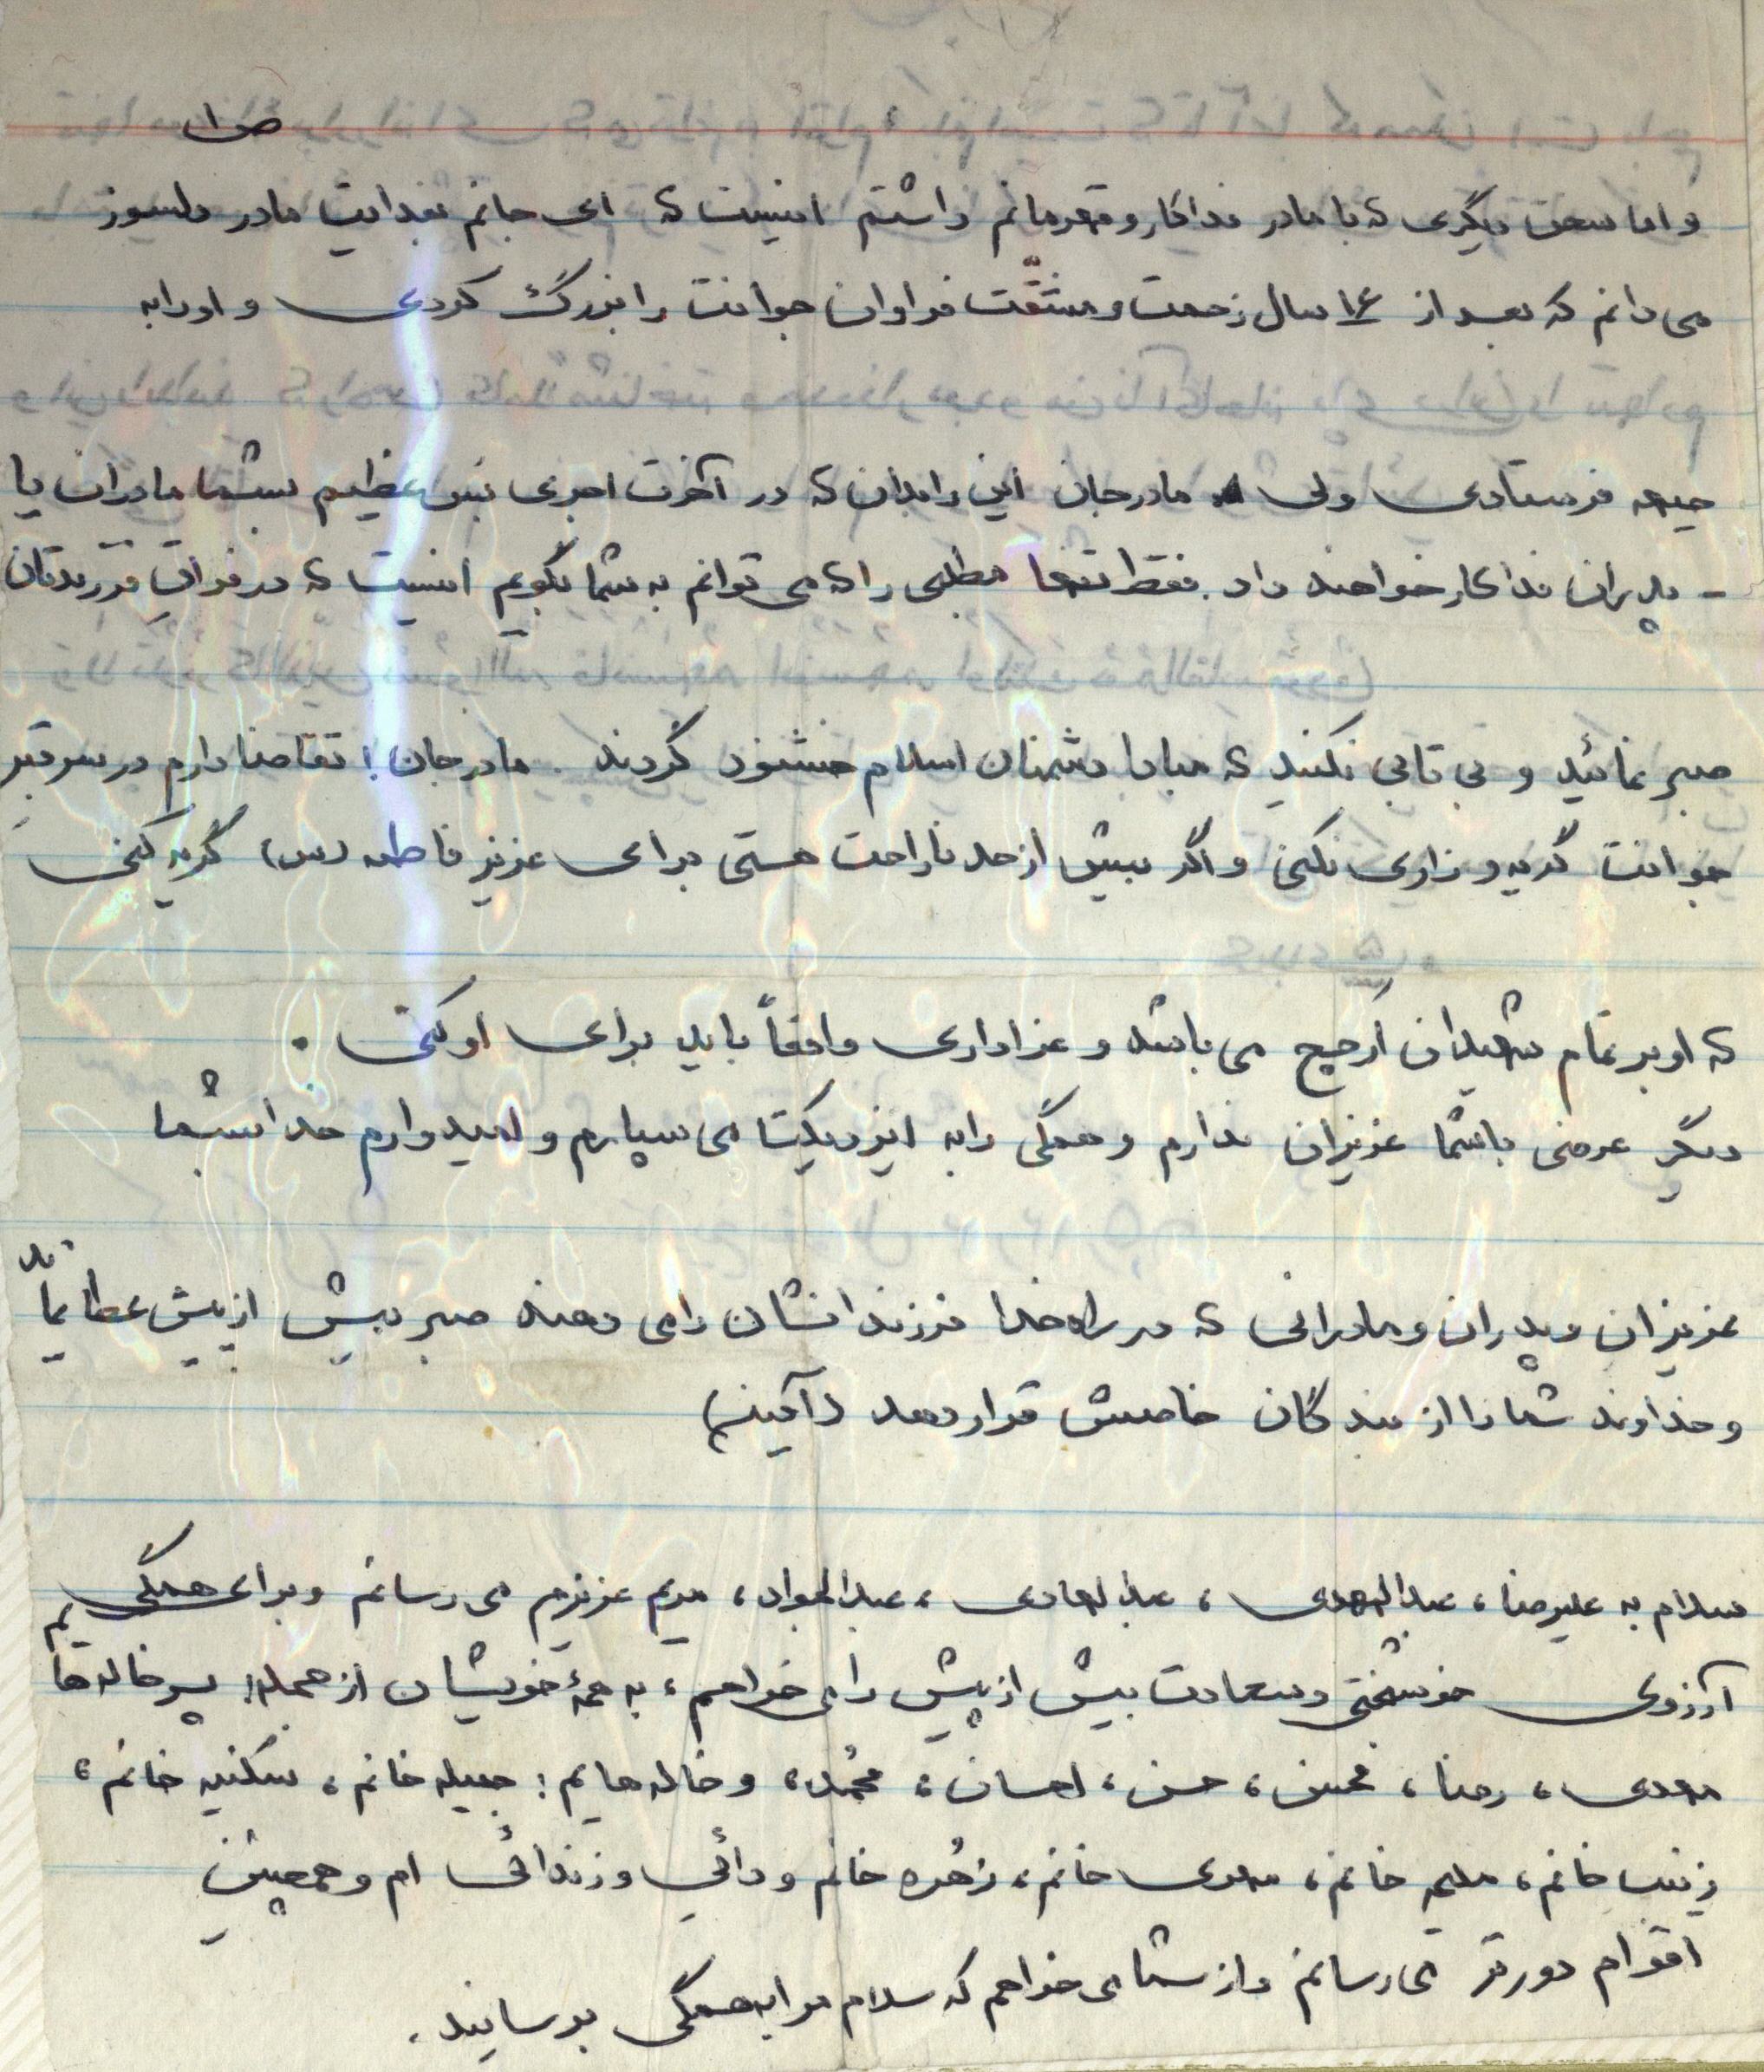 ص ۱
و اما سخن دیگری که با مادر فداکار و قهرمانم داشتم اینست که ای جانم بفدایت مادر دلسوز
می دانم که بعد از ۱۶ سال زحمت و مشقّت فراوان جوانت را بزرگ کردی و او را به
جبهه فرستادی ولی مادر جان این را بدان که در آخرت اجری بس عظیم بشما مادران یا
- پدران فداکار خواهند داد. فقط تنها مطلبی را که می توانم به شما بگویم اینست که در فراقِ فرزندتان
صبر نمائید و بی تابی نکنید که مبادا دشمنان اسلام خشنود گردند. مادر جان! تقاضا دارم در سر قبرِ
جوانت گریه و زاری نکنی و اگر بیش از حد ناراحت هستی برای عزیز فاطمه (س) گریه کنی
که او بر تمام شهیدان ارجح می باشد و عزاداری واقعاً باید برای او کنی .
دیگر عرضی باشما عزیزان ندارم و همگی را به ایزد یکتا می سپارم و امیدوارم خدا بشما
عزیزان و پدران و مادرانی که در راه خدا فرزندانشان را می دهند صبر بیش از پیش عطا نماید
و خداوند شما را از بندگان خاصش قرار دهد (آمین)
سلام به علیرضا، عبدالمهدی ، عبدالهادی ، عبدالجواد، مریم عزیزم می رسانم و برای همگی
آرزوی خوشبختی و سعادت بیش از پیش را می خواهم، به همهٔ خویشان از جمله: پسر خاله هایم
مهدی ، رضا ، محسن ، حسن ، احسان ، محمد ، و خاله هایم : جمیله خانم ، سکینه خانم ،
زینب خانم ، ملیحه خانم ، مهدی خانم ، زهُره خانم و دائی و زندائی ام و همچنین
اقوام دورتر می رسانم و از شما می خواهم که سلام مرا به همگی برسانید .